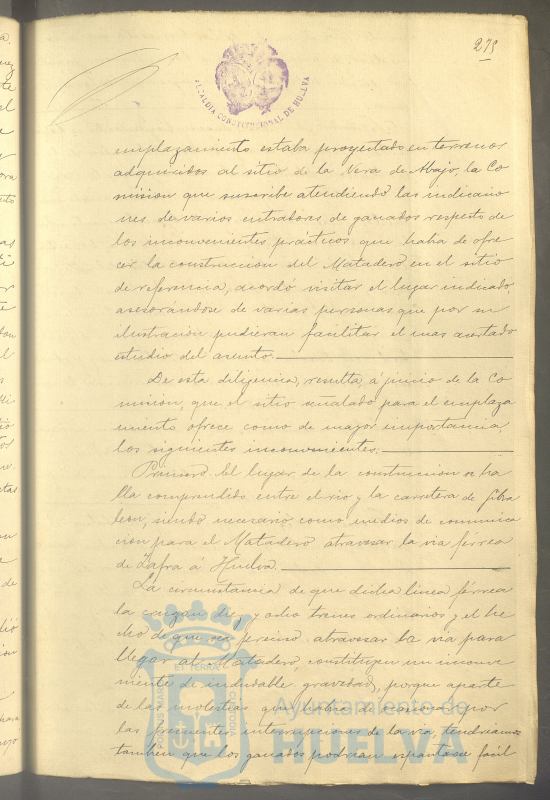 275
ALCALDIA CONSTITUCIONAL DE HUELVA
emplazamiento estaba proyectado en terrenos
adquiridos al sitio de la Vera de Abajo, la Co
mision que suscribe atendiendo las indicacio
nes de varios entradores de ganados respecto de
los inconvenientes prácticos que habia de ofre
cer la construccion del Matadero en el sitio
de referencia, acordó visitar el lugar indicado,
asesorándose de varias personas que por su
ilustracion pudieran facilitar el mas acertado
estudio del asunto.
De esta diligencia, resulta, á juicio de la Co
mision, que el sitio señalado para el emplaza
miento ofrece como de mayor importancia,
los siguientes inconvenientes.
Primero. El lugar de la construccion se ha
lla comprendido entre el rio y la carretera de Gibra
leon, siendo necesario como medios de comunica
cion para el Matadero atravesar la via férrea
de Zafra á Huelva.
La circunstancia de que dicha linea férrea
la crucen y ocho trenes ordinarios y el he
cho de que sea preciso atravesar la via para
llegar al Matadero, constituyen un inconve
niente de indudable gravedad, porque aparte
de las molestias que habria de por
las frecuentes interrupciones de la via, tendriamos
tambien que los ganados podrian espantarse facil
PORTUS MARIS ET TERRAE CUSTODIA
Ayuntamiento de
HUELVA